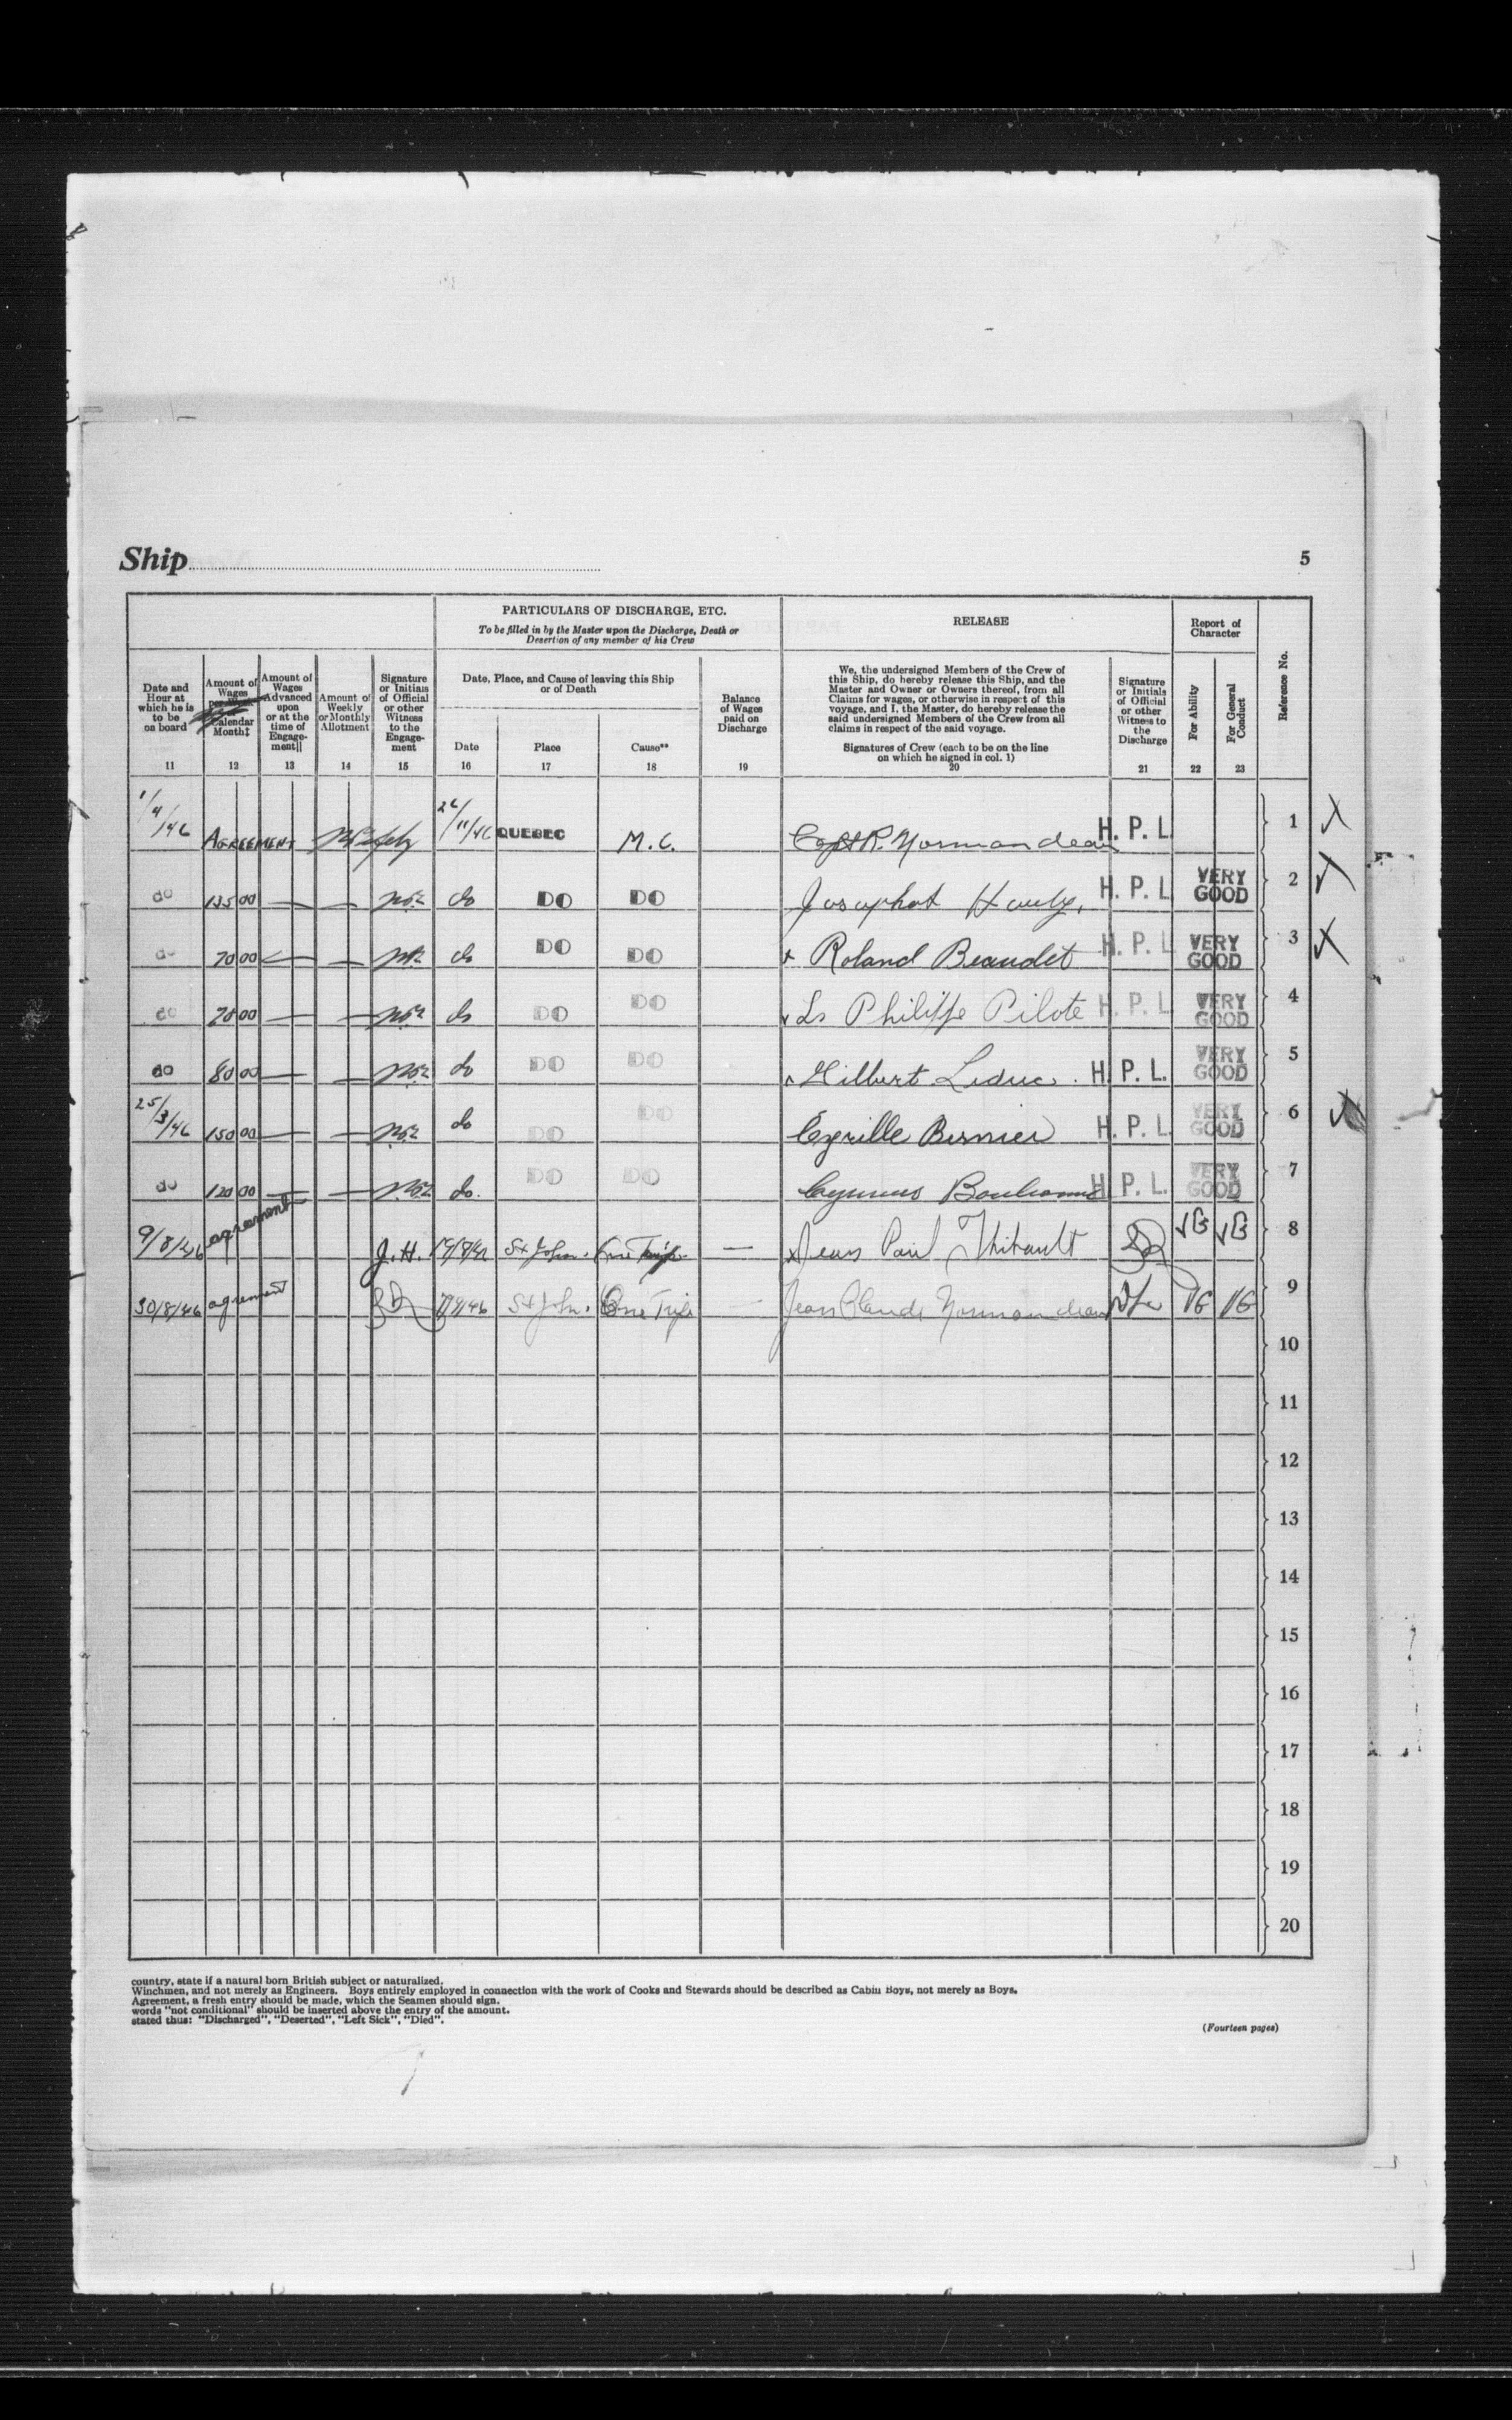 Ship
5
PARTICULARS OF DISCHARGE, ETC.
To be filled in by the Master upon the Discharge, Death or
Desertion of any member of his Crew
RELEASE
Report of
Character
Reference No.
Date and
Hour at
which he is
to be
on board
11
Amount of
Wages
Calendar
Month‡
12
Amount of
Wages
Advanced
upon
or at the
time of
Engage-
ment||
13
Amount of
Weekly
or Monthly
Allotment
14
Signature
or Initials
of Official
or other
Witness
to the
Engage-
ment
15
Date, Place, and Cause of leaving this Ship
or of Death
Date
16
Place
17
Cause**
18
Balance
of Wages
paid on
Discharge
19
We, the undersigned Members of the Crew of
this Ship, do hereby release this Ship, and the
Master and Owner or Owners thereof, from all
Claims for wages, or otherwise in respect of this
voyage, and I, the Master, do hereby release the
said undersigned Members of the Crew from all
claims in respect of the said voyage.
Signatures of Crew (each to be on the line
on which he signed in col. 1)
20
Signature
or Initials
of Official
or other
Witness to
the
Discharge
21
For Ability
22
For General
Conduct
23
1/4/46 AGREEMENT 26/11/46 QUEBEC M.C. Capt R. Normandeau H. P. L. 1
do 135 00 — — do DO DO Josaphat H. P. L. VERY GOOD 2
do 70 00 — — do DO DO x Roland Beaudet H. P. L. VERY GOOD 3
do 70 00 — — do DO DO Ls Philippe Pilote H. P. L. VERY GOOD 4
do 80 00 — — do DO DO Gilbert Leduc. H. P. L. VERY GOOD 5
25/3/46 150 00 — — do DO DO Cyrille Bernier H. P. L. VERY GOOD 6
do 120 00 — — do. DO DO H. P. L. VERY GOOD 7
9/8/46 agreement J.H. St John. One Trip — x Jean Paul Thibault 8
30/8/46 agreement St John. One Trip — Jean Claude Normandeau VG VG 9
10
11
12
13
14
15
16
17
18
19
20
country, state if a natural born British subject or naturalized.
Winchmen, and not merely as Engineers. Boys entirely employed in connection with the work of Cooks and Stewards should be described as Cabin Boys, not merely as Boys.
Agreement, a fresh entry should be made, which the Seamen should sign.
words "not conditional" should be inserted above the entry of the amount.
stated thus: "Discharged", "Deserted", "Left Sick", "Died".
(Fourteen pages)